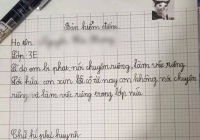 Bản kiểm điểm
Họ tên:
Lớp: 3E
Lí do em bị phạt: nói chuyện riêng, làm việc riêng
Lời hứa: con xin lỗi cô từ nay con không nói chuyện
riêng và làm việc riêng trong lớp nữa.
Chữ kí phụ huynh